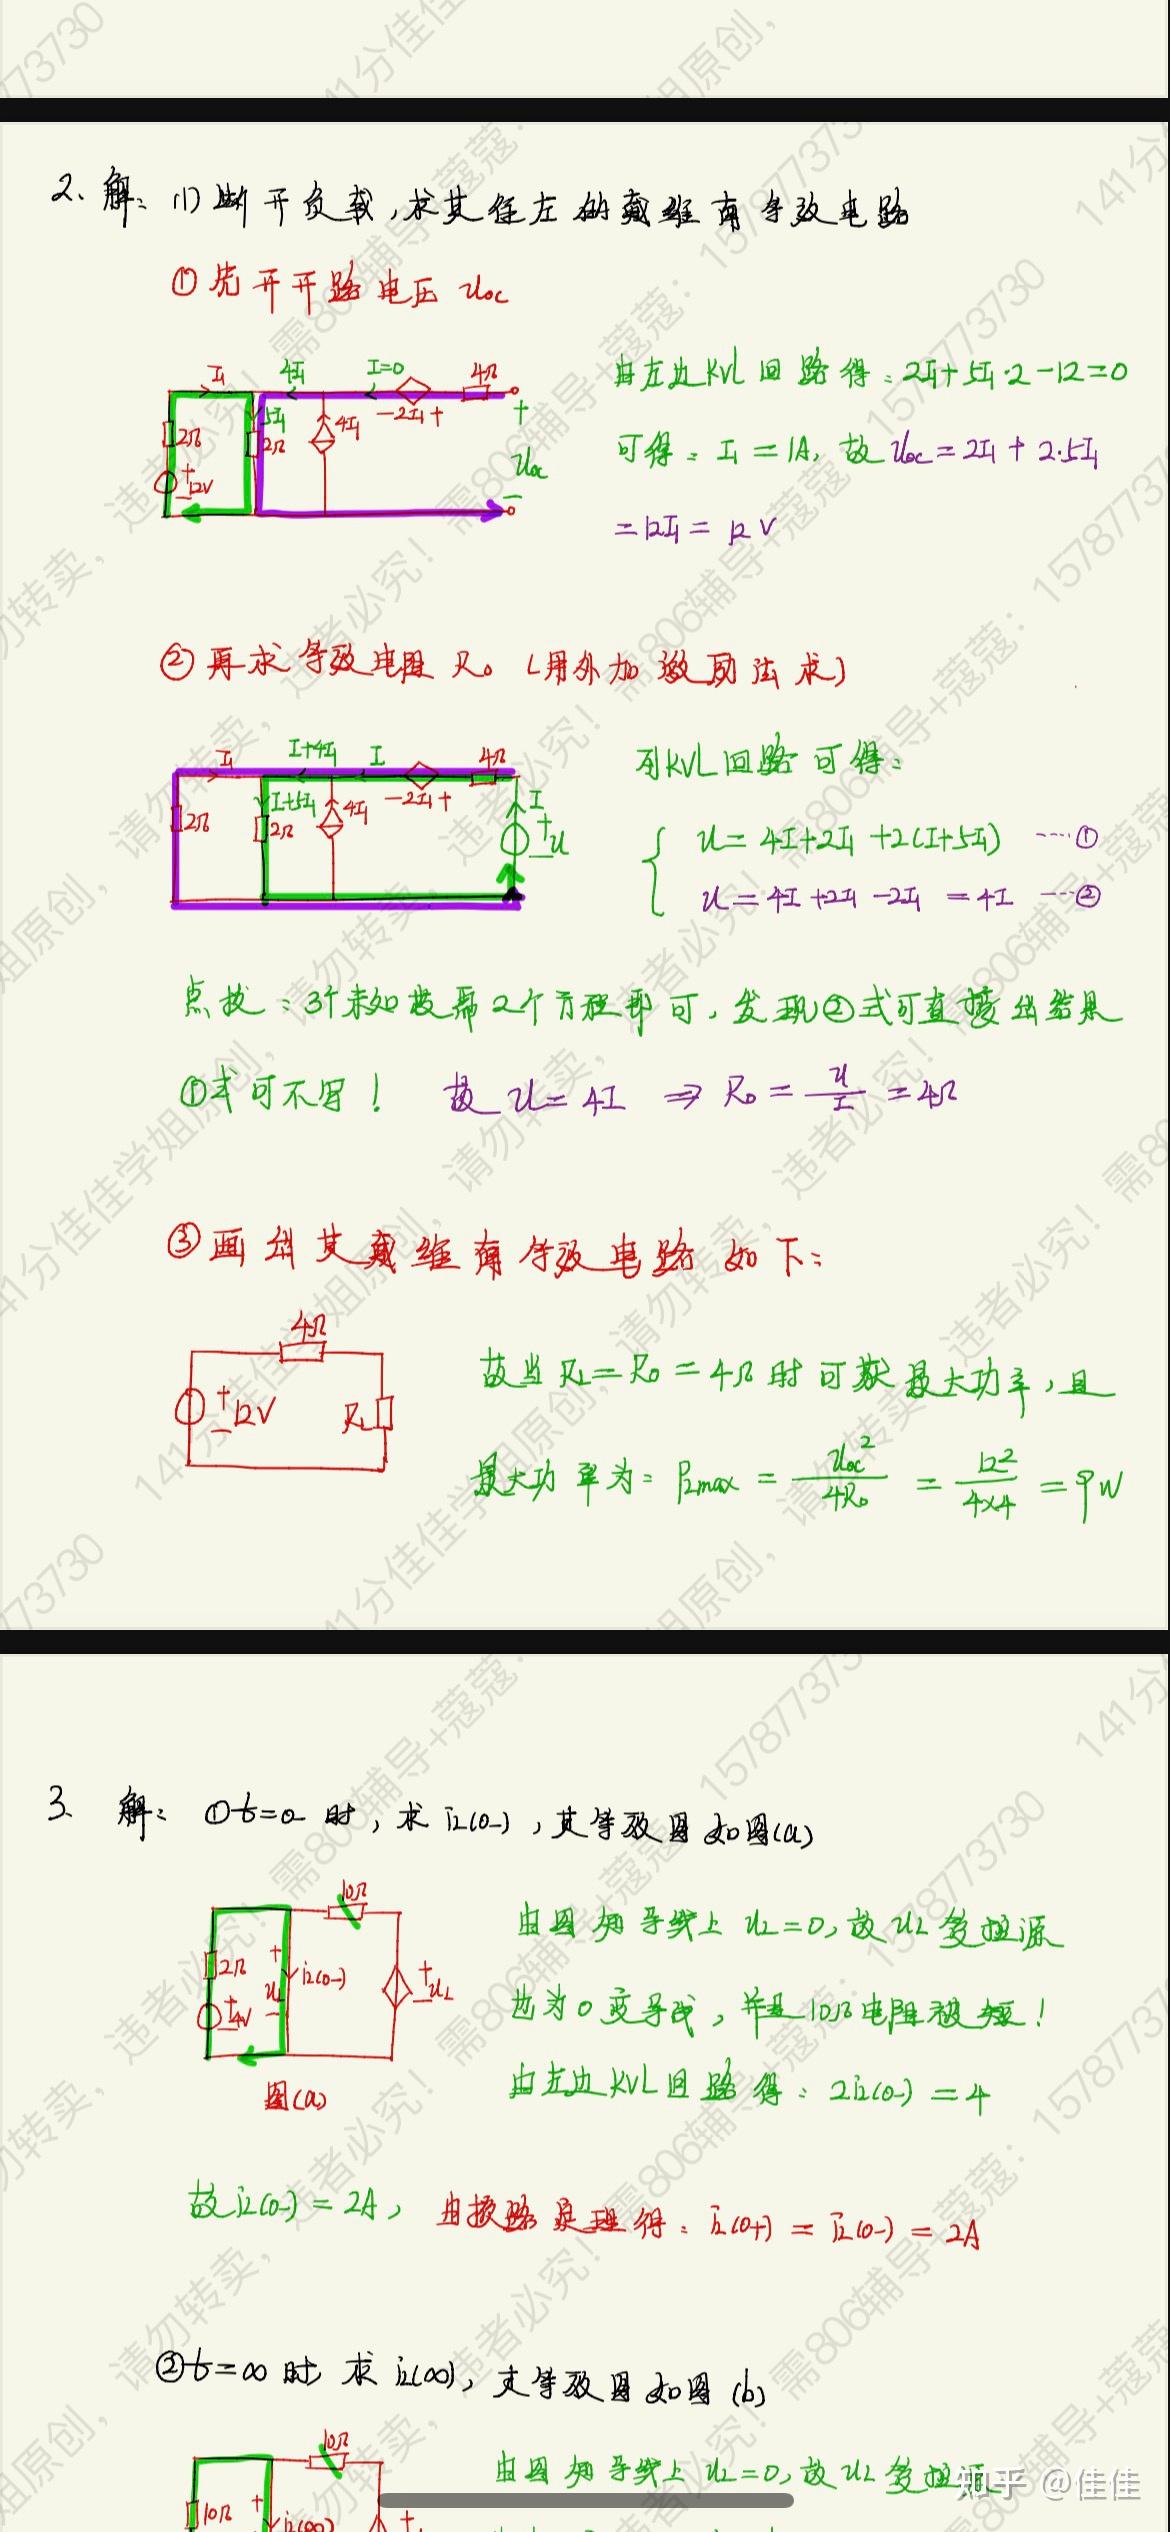 2. 解: (1) 断开负载,求其任左的戴维南等效电路
①先开开路电压 Uoc
I₁ 4I₁ I=0 4Ω
5I₁ 2Ω 2Ω 4I₁ -2I₁+ + Uoc -
+ 12V -
由左边KVL回路得: 2I₁+5I₁·2-12=0
可得: I₁=1A, 故 Uoc=2I₁+2·5I₁
=12I₁=12V
②再求等效电阻 R₀ (用外加激励法求)
I₁ I+4I₁ I 4Ω
2Ω I+5I₁ 2Ω 4I₁ -2I₁+ I + U -
列KVL回路可得:
U=4I+2I₁+2(I+5I₁) ----①
U=4I+2I₁-2I₁=4I ----②
点拨: 3个未知数需2个方程即可, 发现②式可直接出结果
①式可不写! 故 U=4I ⇒ R₀=U/I=4Ω
③画出其戴维南等效电路如下:
4Ω
+ 12V - RL
故当 RL=R₀=4Ω时可获最大功率, 且
最大功率为: PLmax = Uoc²/4R₀ = 12²/4×4 = 9W
3. 解: ①t=0-时, 求 iL(0-), 其等效图如图(a)
10Ω
2Ω + UL - iL(0-) + UL -
+ 4V -
图(a)
由图知导线上 UL=0, 故 UL受控源
也为0变导线, 并且10Ω电阻被短!
由左边KVL回路得: 2iL(0-)=4
故iL(0-)=2A, 由换路定理得: iL(0+)=iL(0-)=2A
②t=∞时 求 iL(∞), 其等效图如图(b)
10Ω
10Ω + iL(∞) +
由图知导线上 UL=0, 故UL受控源
知乎 @佳佳
141分佳佳学姐原创,请勿转卖,违者必究!需806辅导+蔻蔻:15787773730